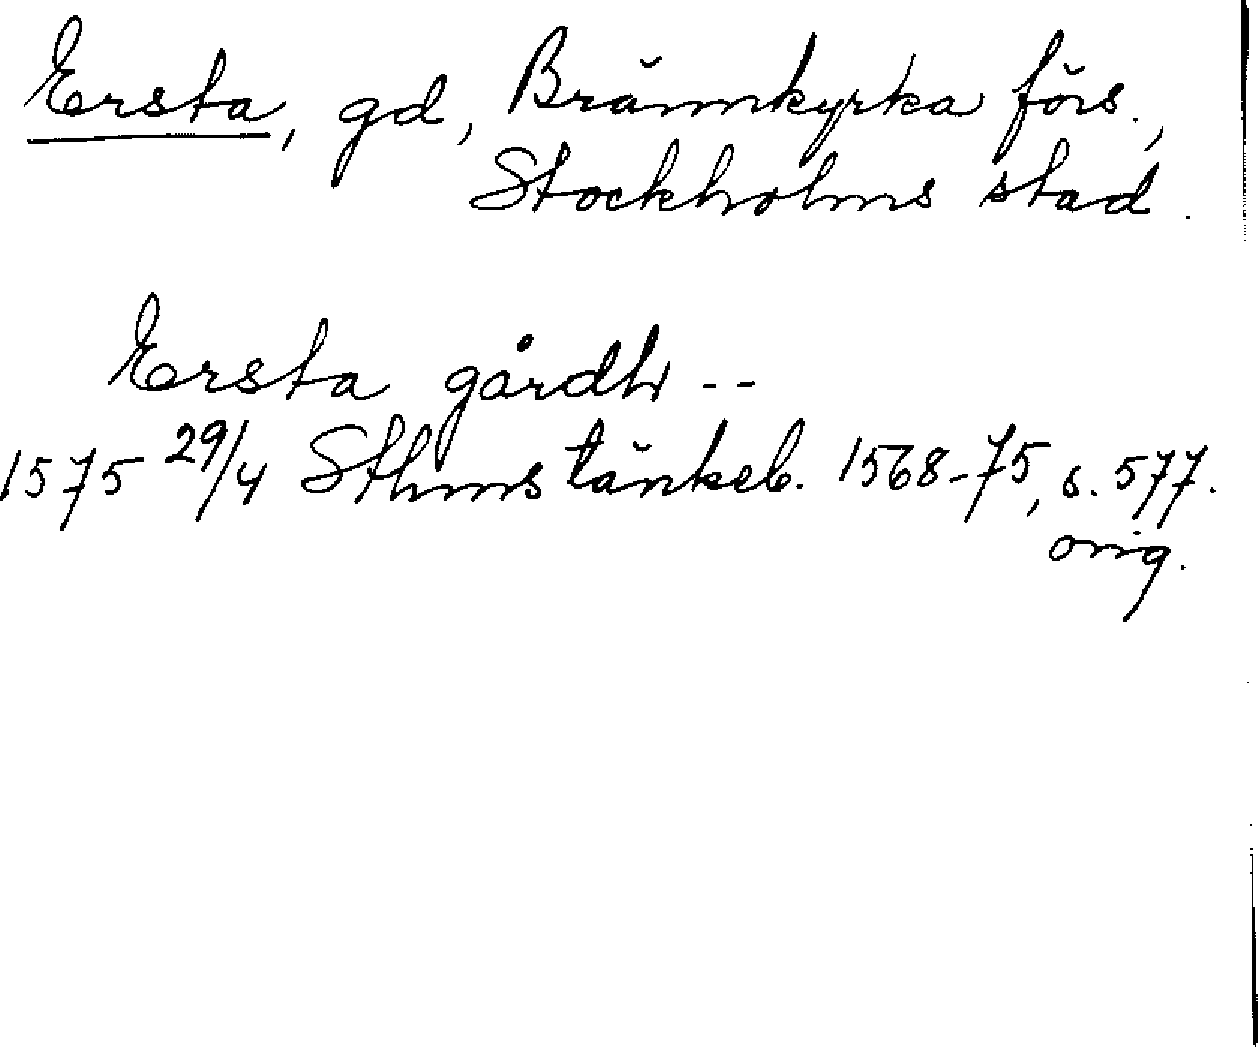 Ersta, gd, Brännkyrka förs.,
Stockholms stad.
Ersta gårdh --
1575 29/4 Sthms tänkeb. 1568-75, s. 577.
orig.